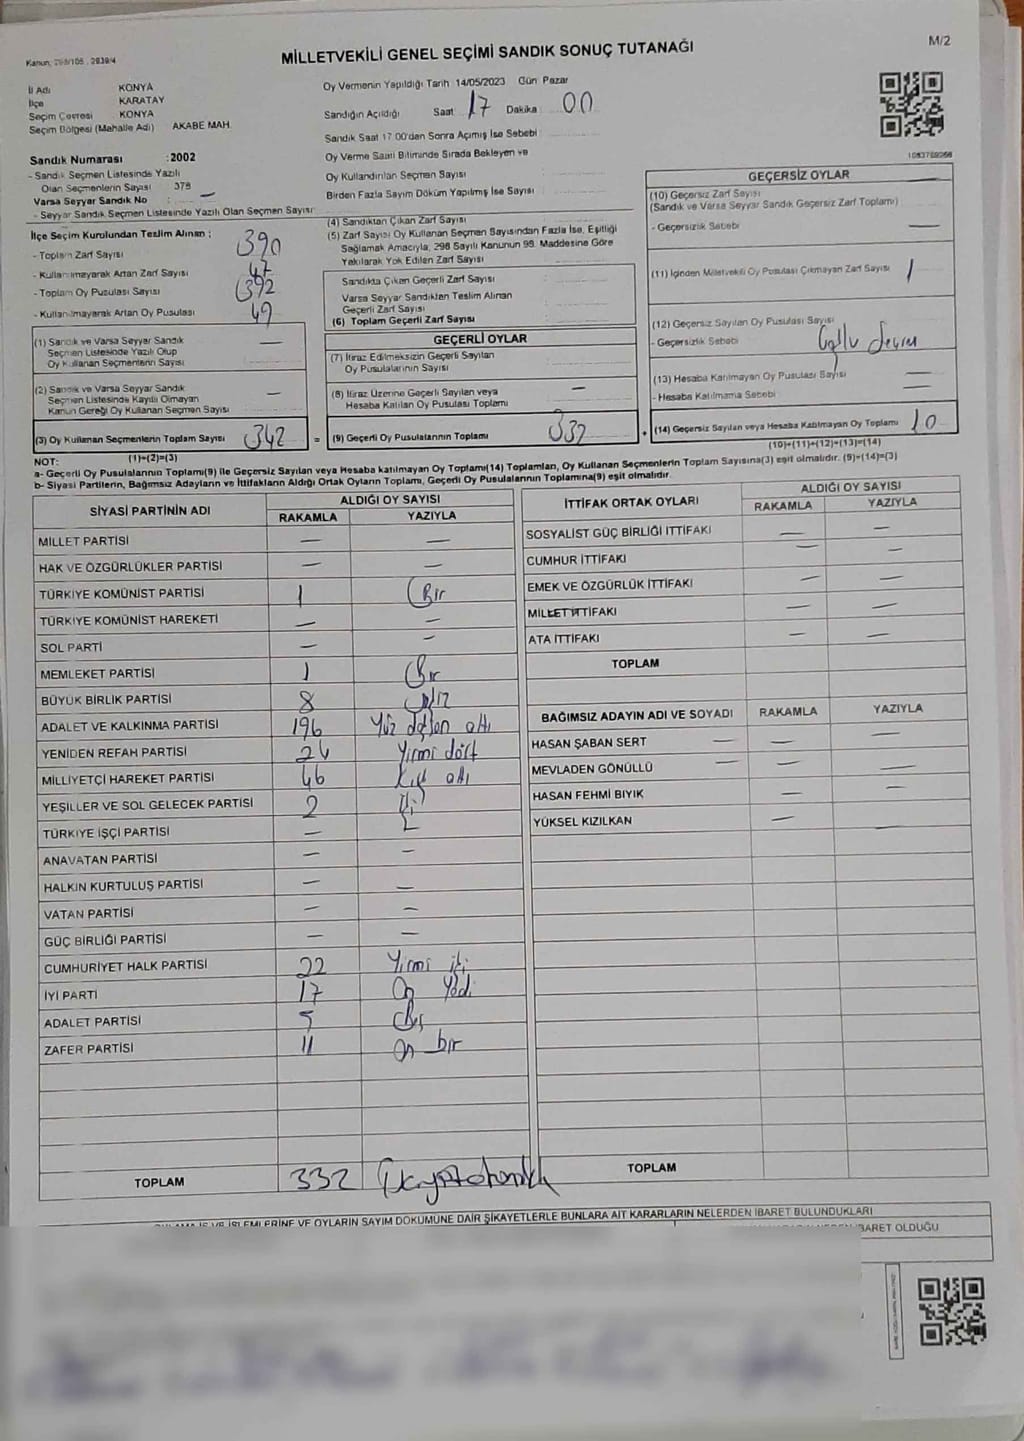 Kanun: 298/105, 2839/4
MİLLETVEKİLİ GENEL SEÇİMİ SANDIK SONUÇ TUTANAĞI
M/2
İl Adı KONYA
İlçe KARATAY
Seçim Çevresi KONYA
Seçim Bölgesi (Mahalle Adı) AKABE MAH.
Oy Vermenin Yapıldığı Tarih 14/05/2023 Gün Pazar
Sandığın Açıldığı Saat 17 Dakika 00
Sandık Saat 17.00'dan Sonra Açımış İse Sebebi
Sandık Numarası :2002
- Sandık Seçmen Listesinde Yazılı
Olan Seçmenlerin Sayısı 378
Varsa Seyyar Sandık No : —
- Seyyar Sandık Seçmen Listesinde Yazılı Olan Seçmen Sayısı
Oy Verme Saati Bitiminde Sırada Bekleyen ve
Oy Kullandırılan Seçmen Sayısı
Birden Fazla Sayım Döküm Yapılmış İse Sayısı
İlçe Seçim Kurulundan Teslim Alınan :
- Toplam Zarf Sayısı 390
- Kullanılmayarak Artan Zarf Sayısı 47
- Toplam Oy Pusulası Sayısı 392
- Kullanılmayarak Artan Oy Pusulası 49
(1) Sandık ve Varsa Seyyar Sandık
Seçmen Listesinde Yazılı Olup
Oy Kullanan Seçmenlerin Sayısı —
(2) Sandık ve Varsa Seyyar Sandık
Seçmen Listesinde Kayıtlı Olmayan
Kanun Gereği Oy Kullanan Seçmen Sayısı —
(3) Oy Kullanan Seçmenlerin Toplam Sayısı 342 =
(4) Sandıktan Çıkan Zarf Sayısı
(5) Zarf Sayısı Oy Kullanan Seçmen Sayısından Fazla İse, Eşitliği
Sağlamak Amacıyla, 298 Sayılı Kanunun 98. Maddesine Göre
Yakılarak Yok Edilen Zarf Sayısı
Sandıkta Çıkan Geçerli Zarf Sayısı
Varsa Seyyar Sandıktan Teslim Alınan
Geçerli Zarf Sayısı
(6) Toplam Geçerli Zarf Sayısı
GEÇERLİ OYLAR
(7) İtiraz Edilmeksizin Geçerli Sayılan
Oy Pusulalarının Sayısı
(8) İtiraz Üzerine Geçerli Sayılan veya
Hesaba Katılan Oy Pusulası Toplamı —
(9) Geçerli Oy Pusulalarının Toplamı 332 +
1083769268
GEÇERSİZ OYLAR
(10) Geçersiz Zarf Sayısı —
(Sandık ve Varsa Seyyar Sandık Geçersiz Zarf Toplamı)
- Geçersizlik Sebebi —
(11) İçinden Milletvekili Oy Pusulası Çıkmayan Zarf Sayısı 1
(12) Geçersiz Sayılan Oy Pusulası Sayısı
- Geçersizlik Sebebi
(13) Hesaba Katılmayan Oy Pusulası Sayısı —
- Hesaba Katılmama Sebebi —
(14) Geçersiz Sayılan veya Hesaba Katılmayan Oy Toplamı 10
NOT: (1)+(2)=(3)
(10)+(11)+(12)+(13)=(14)
a- Geçerli Oy Pusulalarının Toplamı(9) ile Geçersiz Sayılan veya Hesaba katılmayan Oy Toplamı(14) Toplamları, Oy Kullanan Seçmenlerin Toplam Sayısına(3) eşit olmalıdır. (9)+(14)=(3)
b- Siyasi Partilerin, Bağımsız Adayların ve İttifakların Aldığı Ortak Oyların Toplamı, Geçerli Oy Pusulalarının Toplamına(9) eşit olmalıdır.
SİYASİ PARTİNİN ADI ALDIĞI OY SAYISI
RAKAMLA YAZIYLA
MİLLET PARTİSİ — —
HAK VE ÖZGÜRLÜKLER PARTİSİ — —
TÜRKİYE KOMÜNİST PARTİSİ 1 Bir
TÜRKİYE KOMÜNİST HAREKETİ — —
SOL PARTİ — —
MEMLEKET PARTİSİ 1 Bir
BÜYÜK BİRLİK PARTİSİ 8
ADALET VE KALKINMA PARTİSİ 196 Yüz doksan altı
YENİDEN REFAH PARTİSİ 24 Yirmi dört
MİLLİYETÇİ HAREKET PARTİSİ 46 Kırk altı
YEŞİLLER VE SOL GELECEK PARTİSİ 2 İki
TÜRKİYE İŞÇİ PARTİSİ — —
ANAVATAN PARTİSİ — —
HALKIN KURTULUŞ PARTİSİ — —
VATAN PARTİSİ — —
GÜÇ BİRLİĞİ PARTİSİ — —
CUMHURİYET HALK PARTİSİ 22 Yirmi iki
İYİ PARTİ 17 On Yedi
ADALET PARTİSİ 5 Beş
ZAFER PARTİSİ 11 On bir
TOPLAM 332
İTTİFAK ORTAK OYLARI ALDIĞI OY SAYISI
RAKAMLA YAZIYLA
SOSYALİST GÜÇ BİRLİĞİ İTTİFAKI — —
CUMHUR İTTİFAKI — —
EMEK VE ÖZGÜRLÜK İTTİFAKI — —
MİLLET İTTİFAKI — —
ATA İTTİFAKI — —
TOPLAM
BAĞIMSIZ ADAYIN ADI VE SOYADI RAKAMLA YAZIYLA
HASAN ŞABAN SERT — — —
MEVLADEN GÖNÜLLÜ — — —
HASAN FEHMİ BIYIK — —
YÜKSEL KIZILKAN — —
TOPLAM
İŞLEMLERİNE VE OYLARIN SAYIM DÖKÜMÜNE DAİR ŞİKAYETLERLE BUNLARA AİT KARARLARIN NELERDEN İBARET BULUNDUKLARI
İBARET OLDUĞU